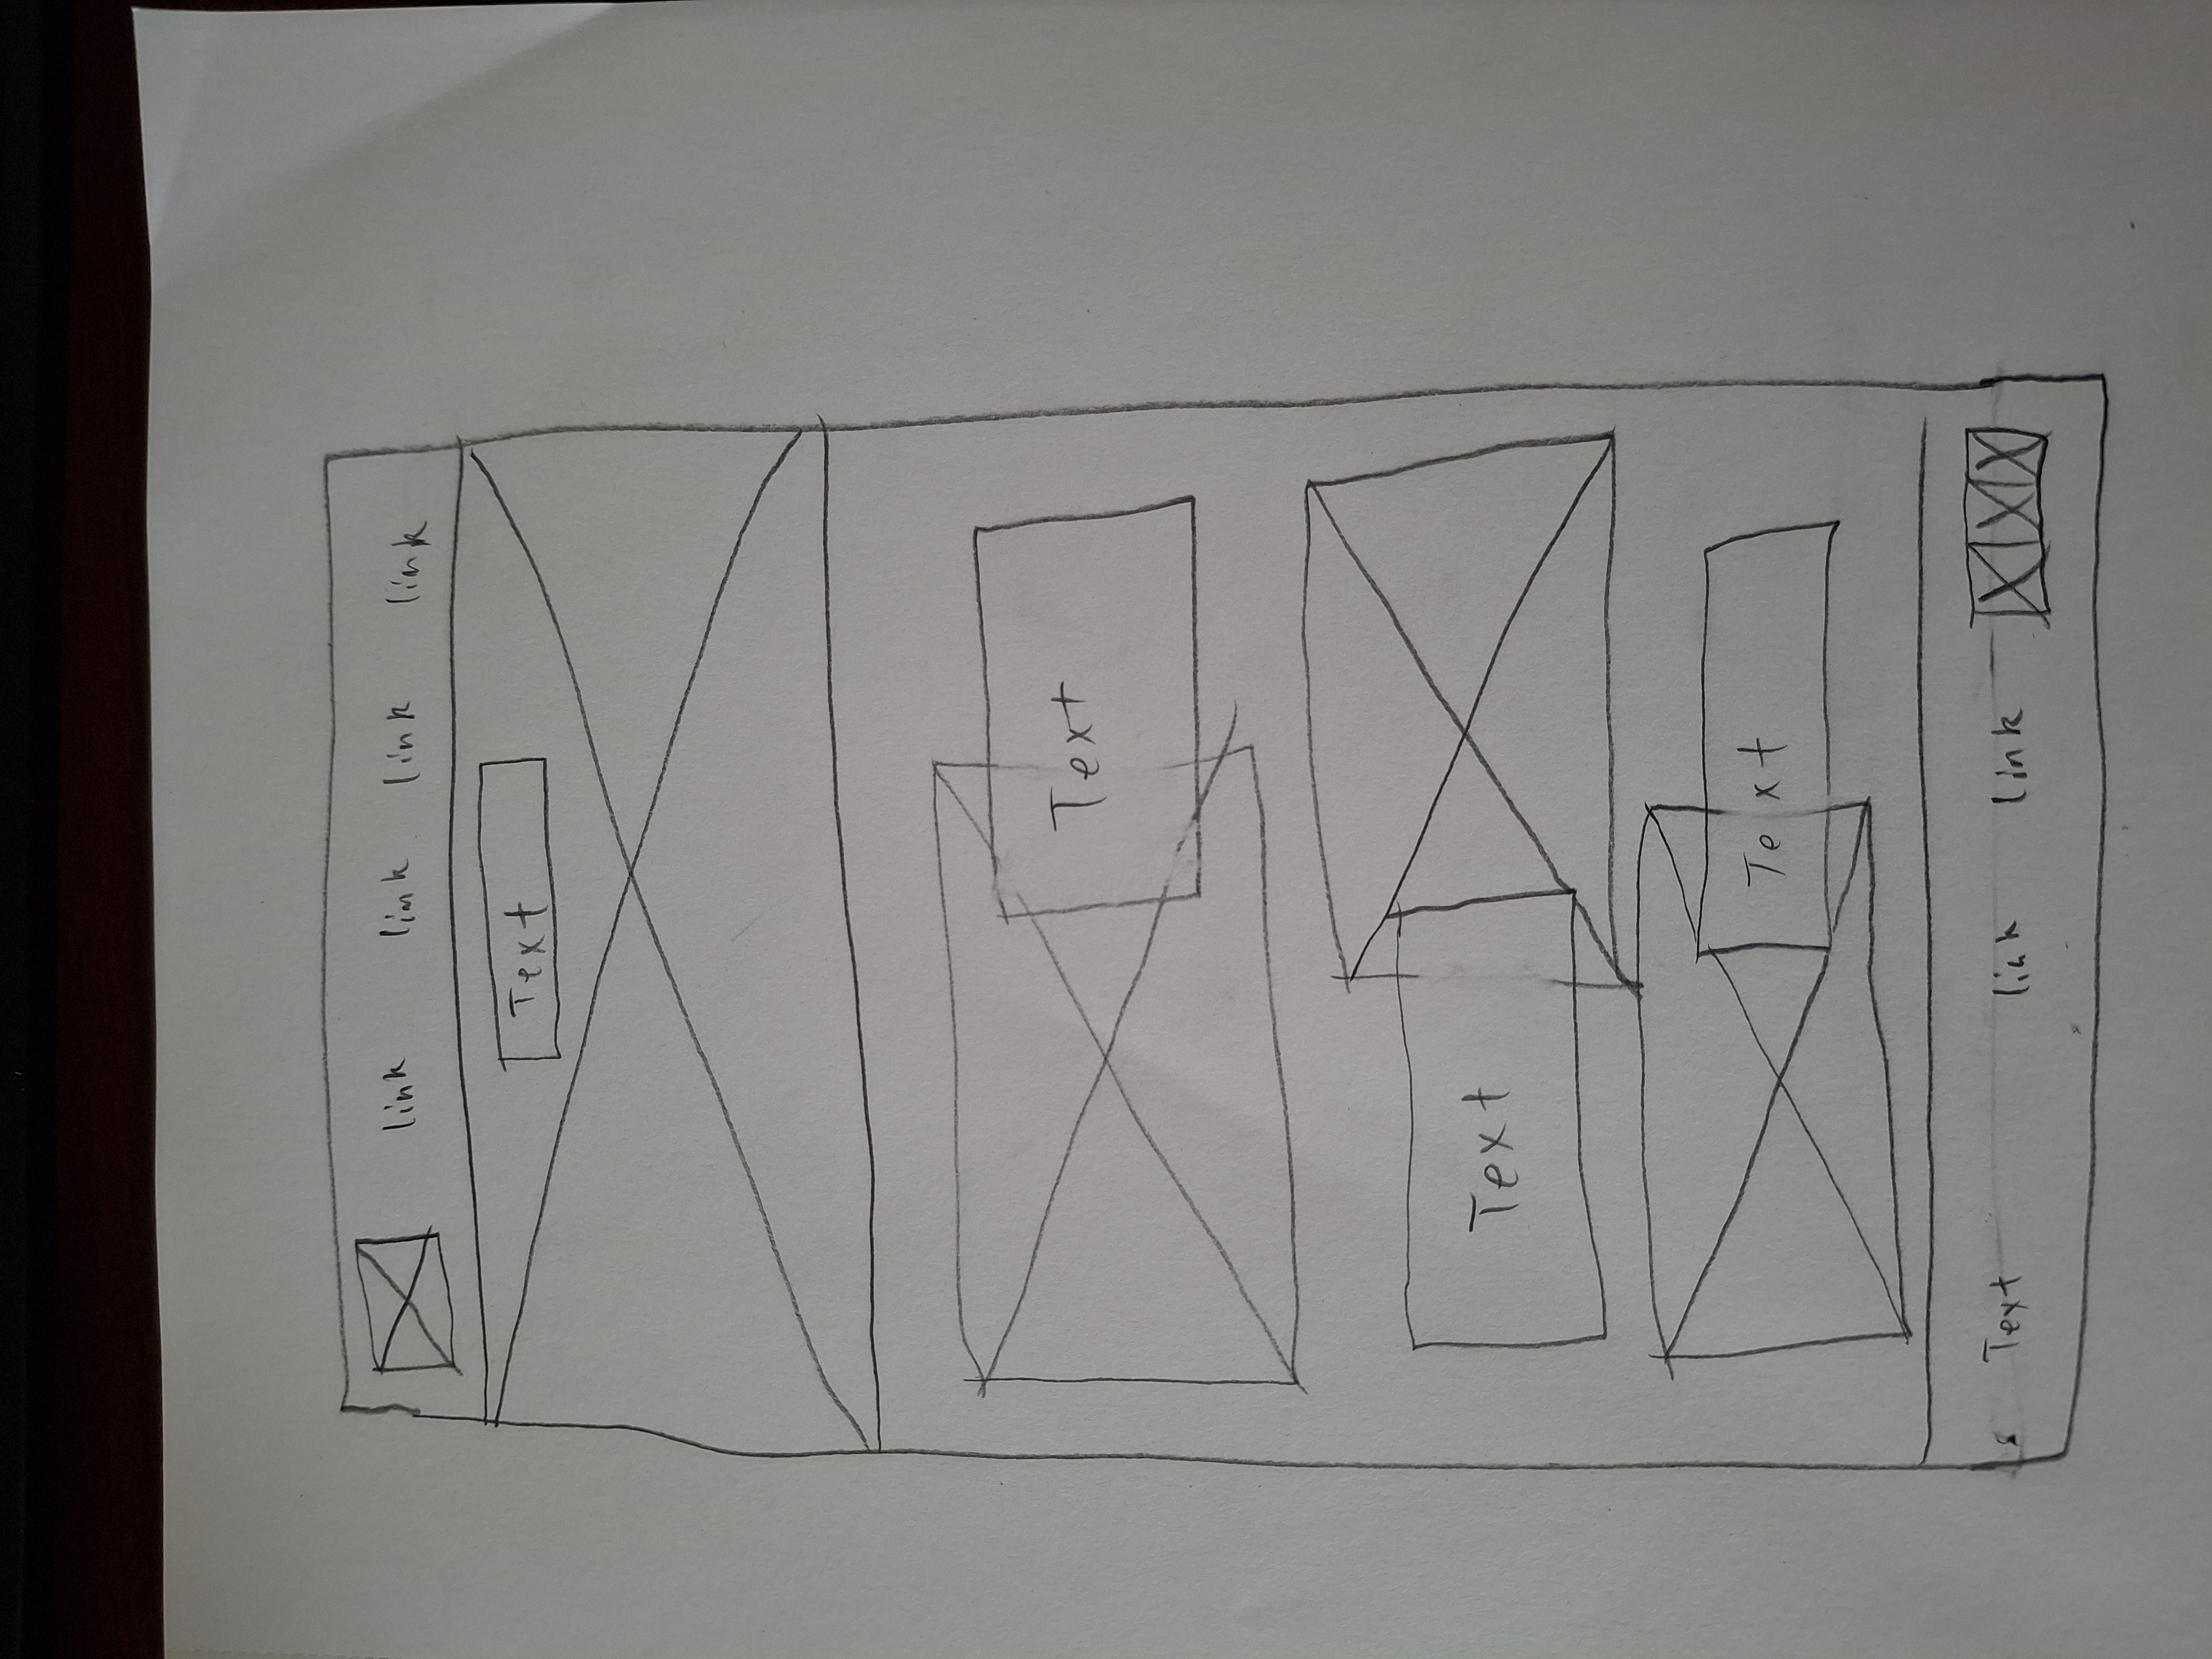 link link link link
Text
Text
Text
Text
Text link link